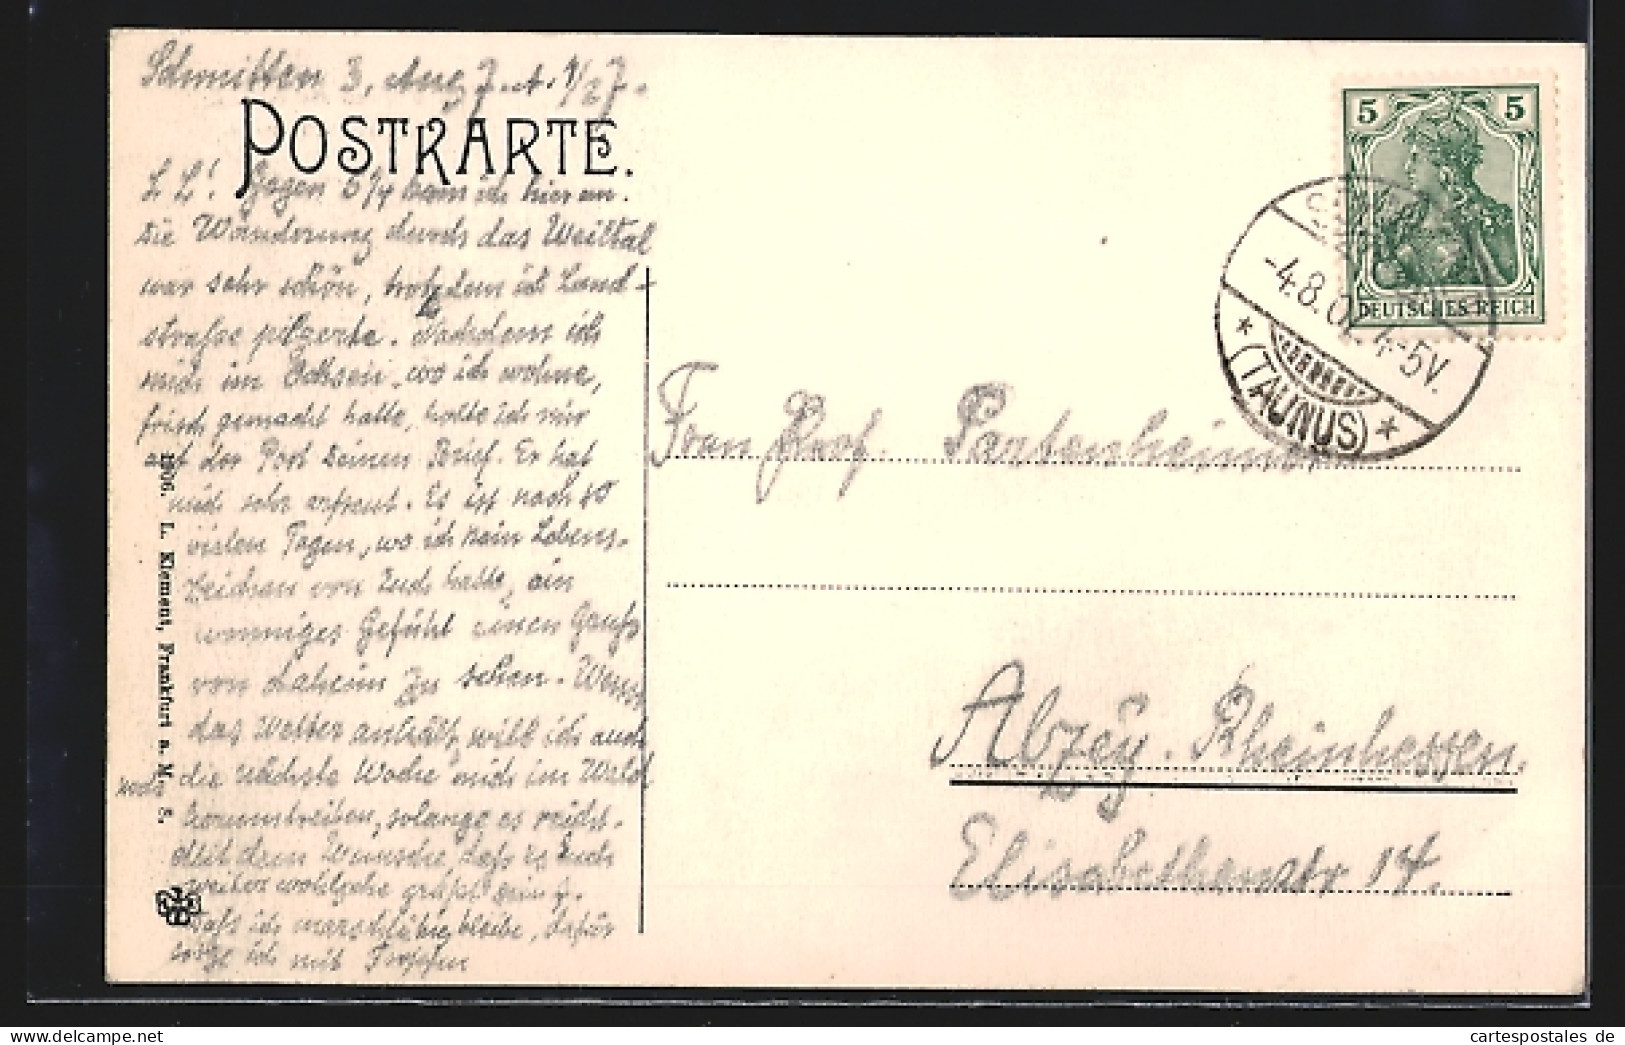 Schmitten 3. Aug 7. A. 9/27.
POSTKARTE.
L L! Gegen 6/4 kam ich hier an.
Die Wanderung durch das Weiltal
war sehr schön, trotzdem ich Land-
strasse pilgerte. Nachdem ich
mich im Ochsen, wo ich wohne,
frisch gemacht hatte, holte ich mir
auf der Post Deinen Brief. Er hat
mich sehr erfreut. Es ist nach so
vielen Tagen, wo ich kein Lebens-
zeichen von Euch hatte, ein
wonniges Gefühl einen Gruss
von Daheim zu sehen. Wenn
das Wetter anhält, will ich auch
die nächste Woche mich im Wald
noch
herumtreiben, solange es reicht.
Mit dem Wunsche, dass es Euch
weiter wohlgehe grüsst Dein J.
Dass ich marschfähig bleibe, dafür
sorge ich mit
1906. L. Klement, Frankfurt a. M. S.
5 5
DEUTSCHES REICH
-4.8.07 4-5V.
* (TAUNUS) *
Frau Prof. Partenheimer
Alzey. Rheinhessen.
Elisabethenstr 14.
cartespostales de
delcampe.net